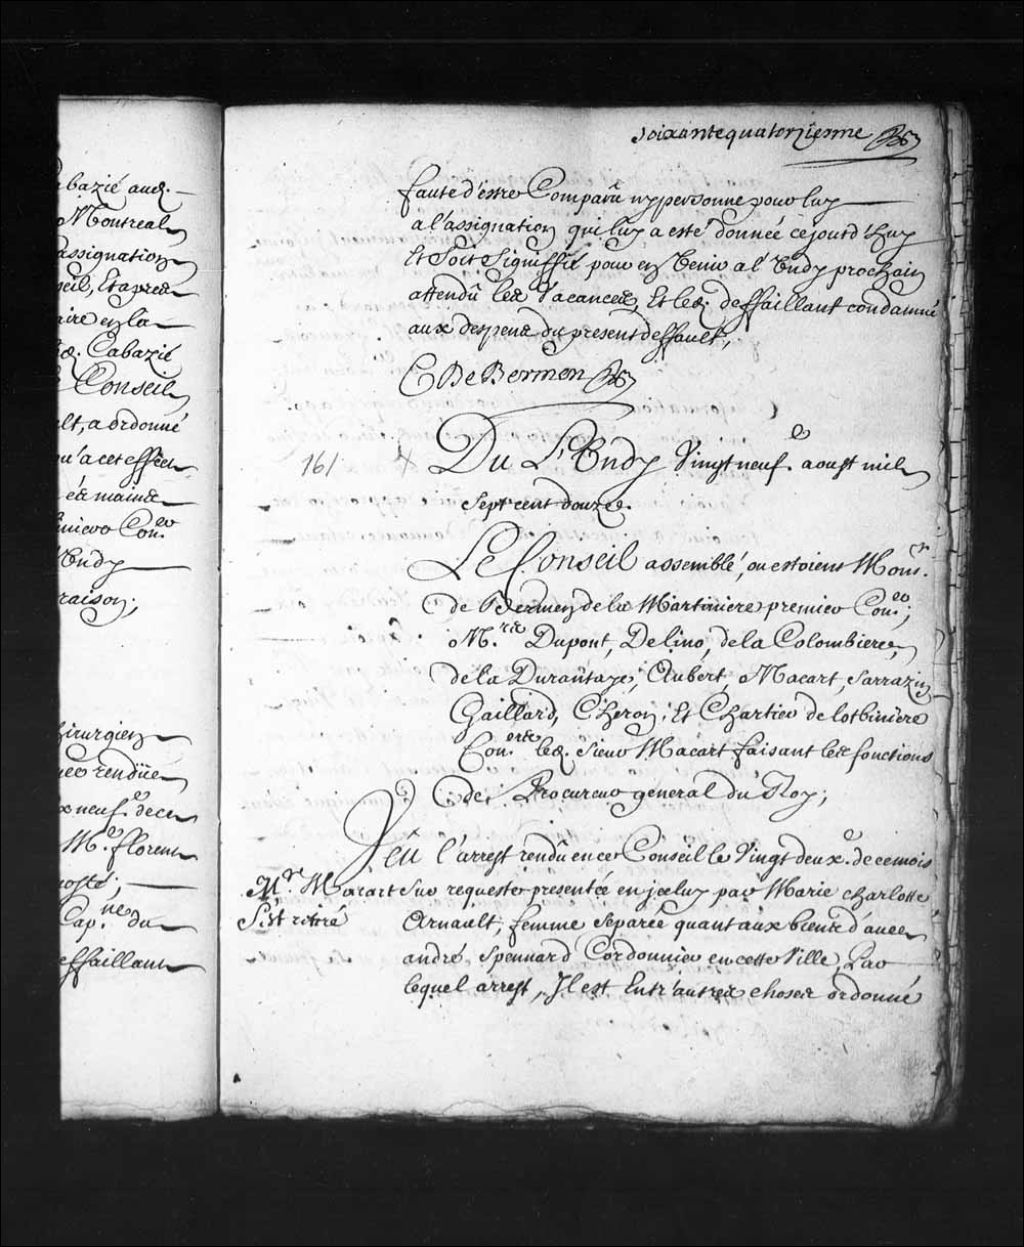 bazié aud.
Montreal
assignation
seil, Et apres
aire en la
d. Cabazié
Conseil
lt, a ordonné
qu'a cet effect
es mains
Con.er
Lundy
raison;
hirurgien
rendüe
x neuf.e de ce
M.e florent
Cap.ne du
deffaillant
soixante quatorzieme
faute d'estre Comparû ny personne pour luy
a l'assignation qui luy a esté donnée cejourd'huy
Et Soit Signiffié pour en Venir a l'Undy prochain
attendû les Vacances, Et led. deffaillant condamné
aux despens du present deffault,
C De Bermen
161
Du L'Undy Vingt neuf.e aoust mil
Sept cent douze.
Le Conseil assemblé, ou estoient Mons.r
de Bermen de la Martiniere premier Con.er;
M.res Dupont, Delino, de la Colombiere,
de la Durantaye, Aubert, Macart, Sarrazin
Gaillard, C'heron, Et Chartier de lotbiniere
Con.ers led. Sieur Macart faisant les fonctions
de Procureur general du Roy;
Veu l'arrest rendû en ce Conseil le Vingt deux.e de ce mois
Mr. Macart
S'est retiré
Sur requeste presentée en jceluy par Marie charlotte
Arnault, femme Separée quant aux biens d'avec
andré Spennard Cordonnier en cette Ville, Par
lequel arrest, Il est Entr'autres choses ordonné